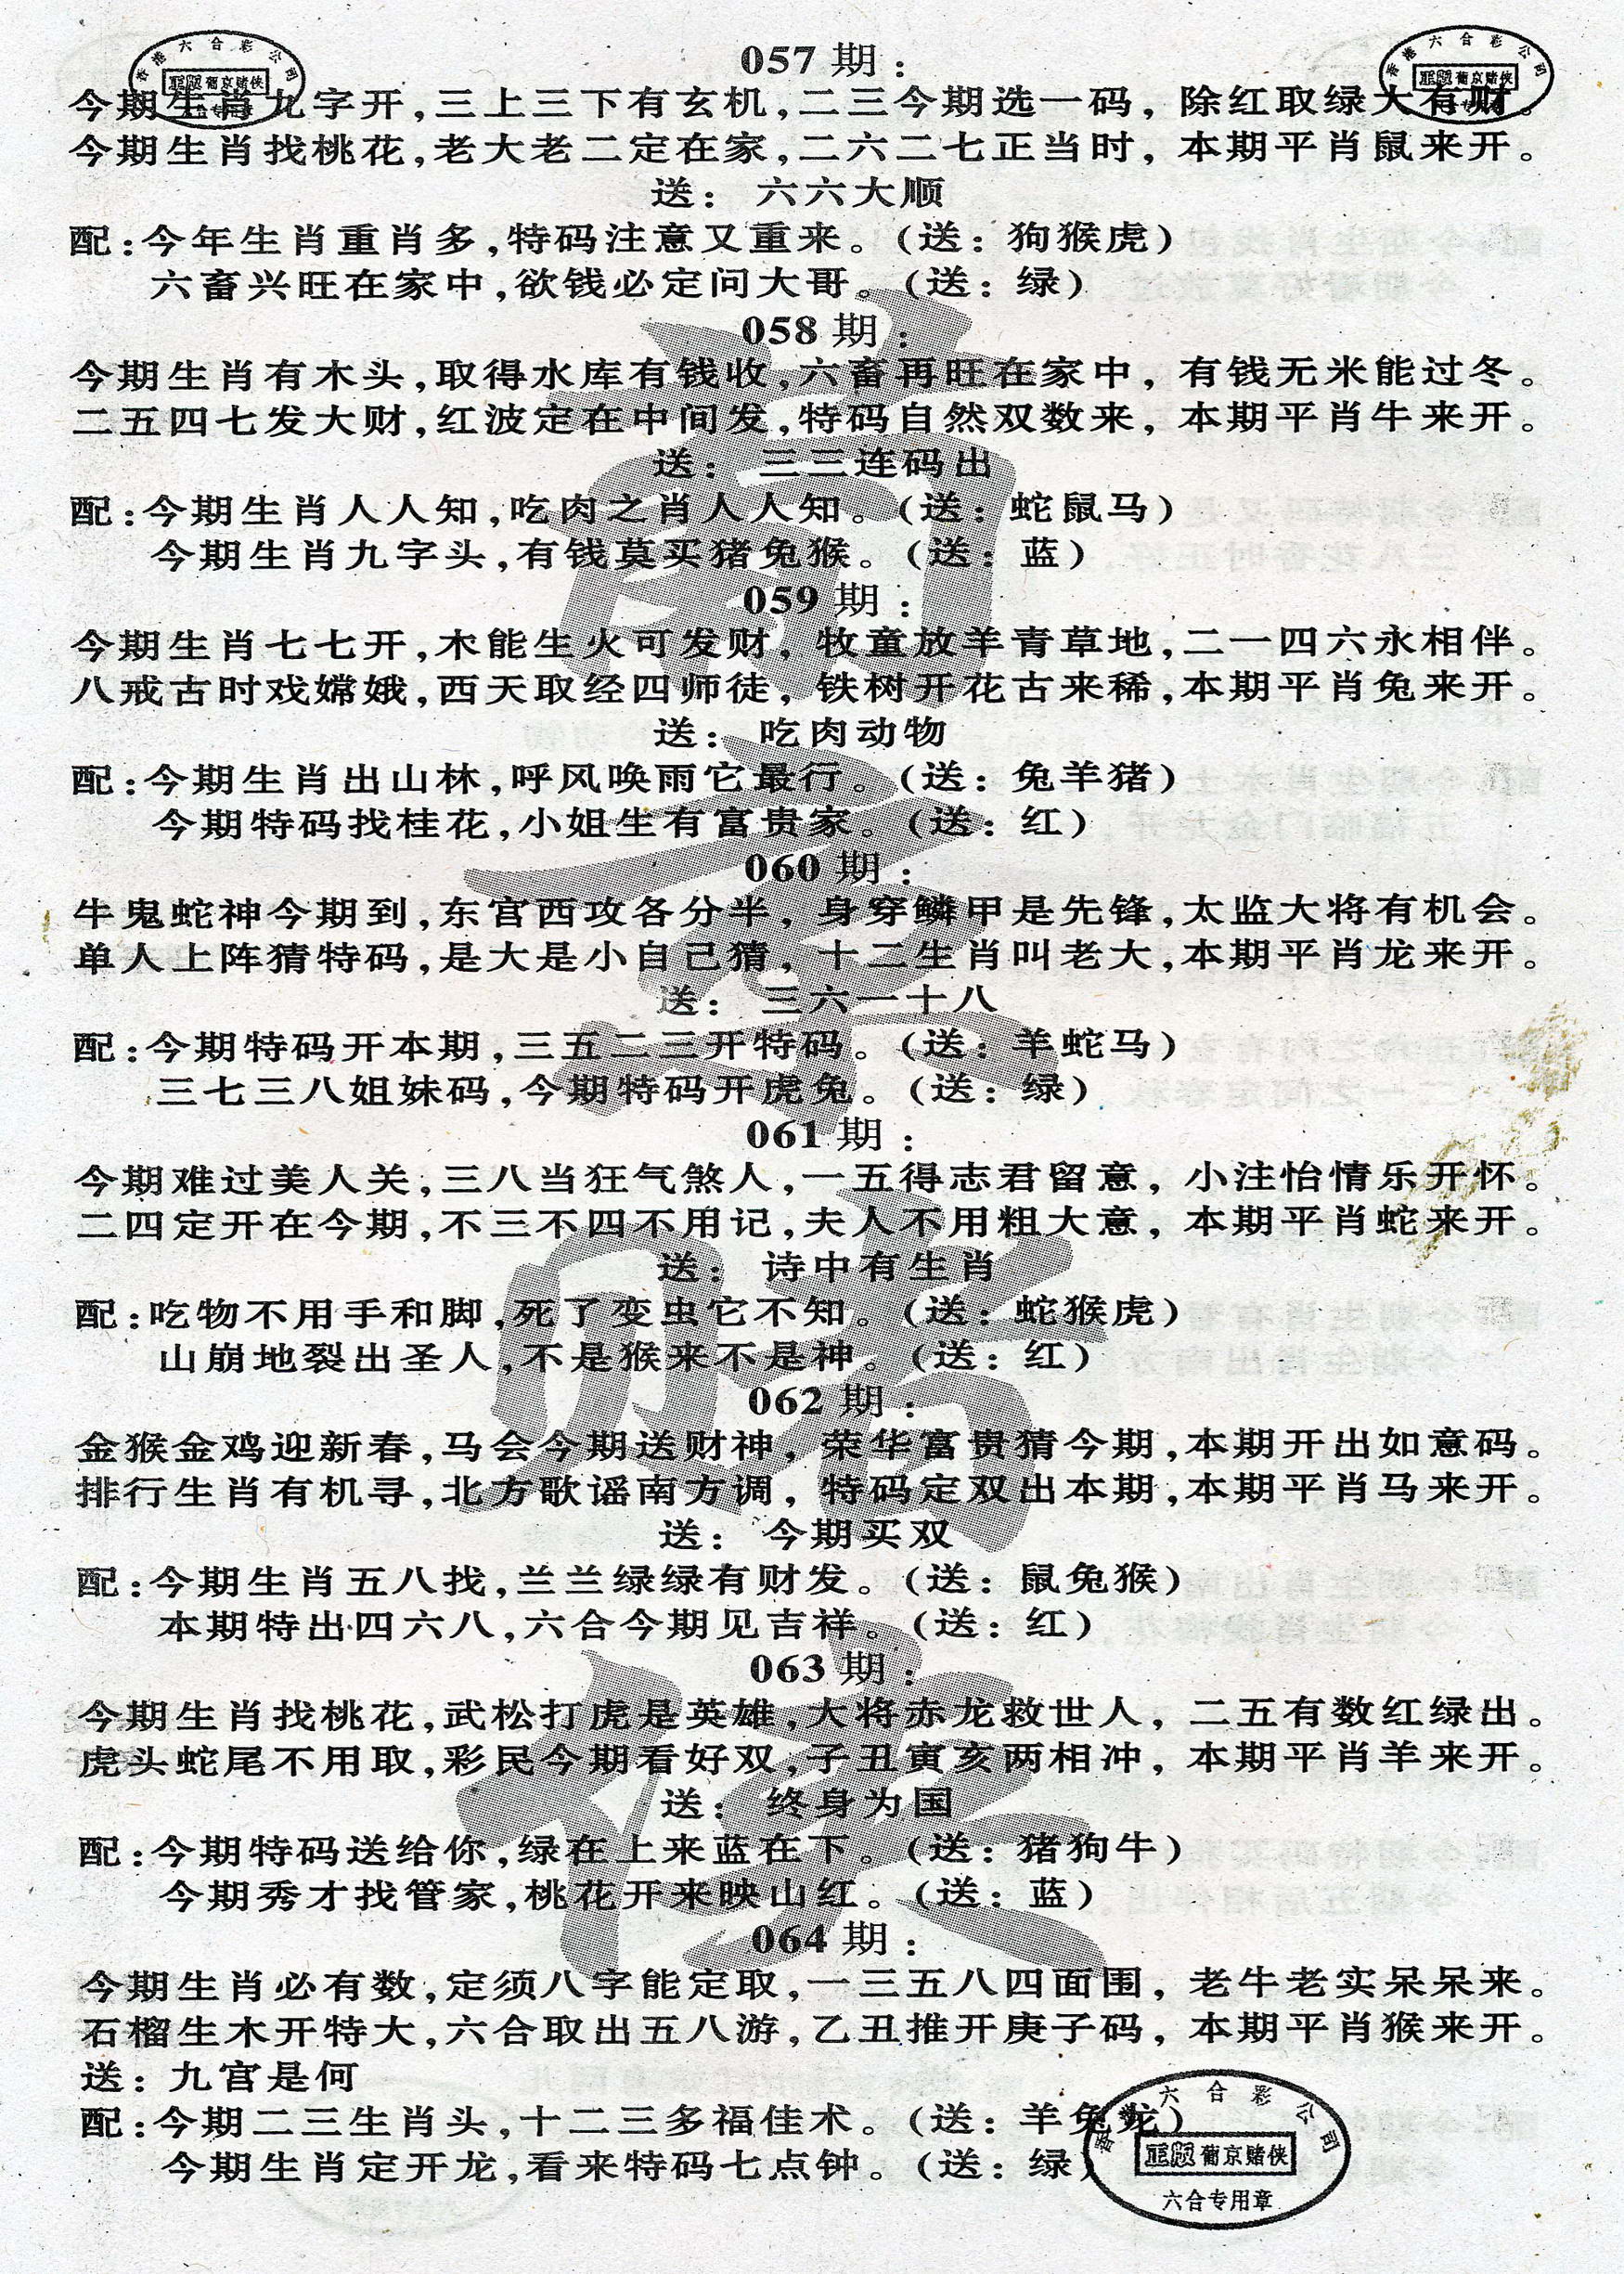 香港六合彩公司
正版 葡京赌侠
香港六合彩公司
正版 葡京赌侠
057期：
今期生肖九字开,三上三下有玄机,二三今期选一码, 除红取绿大有财。
今期生肖找桃花,老大老二定在家,二六二七正当时, 本期平肖鼠来开。
送: 六六大顺
配:今年生肖重肖多,特码注意又重来。(送: 狗猴虎)
六畜兴旺在家中,欲钱必定问大哥。(送: 绿)
058期：
今期生肖有木头,取得水库有钱收,六畜再旺在家中, 有钱无米能过冬。
二五四七发大财,红波定在中间发,特码自然双数来, 本期平肖牛来开。
送: 三三连码出
配:今期生肖人人知,吃肉之肖人人知。(送: 蛇鼠马)
今期生肖九字头,有钱莫买猪兔猴。(送: 蓝)
059期：
今期生肖七七开,木能生火可发财, 牧童放羊青草地,二一四六永相伴。
八戒古时戏嫦娥,西天取经四师徒, 铁树开花古来稀,本期平肖兔来开。
送: 吃肉动物
配:今期生肖出山林,呼风唤雨它最行。(送: 兔羊猪)
今期特码找桂花,小姐生有富贵家。(送: 红)
060期：
牛鬼蛇神今期到,东宫西攻各分半, 身穿鳞甲是先锋,太监大将有机会。
单人上阵猜特码,是大是小自己猜, 十二生肖叫老大,本期平肖龙来开。
送: 三六一十八
配:今期特码开本期,三五二三开特码。(送: 羊蛇马)
三七三八姐妹码,今期特码开虎兔。(送: 绿)
061期：
今期难过美人关,三八当狂气煞人,一五得志君留意, 小注怡情乐开怀。
二四定开在今期,不三不四不用记,夫人不用粗大意, 本期平肖蛇来开。
送: 诗中有生肖
配:吃物不用手和脚,死了变虫它不知。(送: 蛇猴虎)
山崩地裂出圣人,不是猴来不是神。(送: 红)
062期：
金猴金鸡迎新春,马会今期送财神, 荣华富贵猜今期,本期开出如意码。
排行生肖有机寻,北方歌谣南方调, 特码定双出本期,本期平肖马来开。
送: 今期买双
配:今期生肖五八找,兰兰绿绿有财发。(送: 鼠兔猴)
本期特出四六八,六合今期见吉祥。(送: 红)
063期：
今期生肖找桃花,武松打虎是英雄,大将赤龙救世人, 二五有数红绿出。
虎头蛇尾不用取,彩民今期看好双,子丑寅亥两相冲, 本期平肖羊来开。
送: 终身为国
配:今期特码送给你,绿在上来蓝在下。(送: 猪狗牛)
今期秀才找管家,桃花开来映山红。(送: 蓝)
064期：
今期生肖必有数,定须八字能定取,一三五八四面围, 老牛老实呆呆来。
石榴生木开特大,六合取出五八游,乙丑推开庚子码, 本期平肖猴来开。
送: 九宫是何
配:今期二三生肖头,十二三多福佳术。(送: 羊兔龙)
今期生肖定开龙,看来特码七点钟。(送: 绿)
香港六合彩公司
正版 葡京赌侠
六合专用章
葡京赌侠